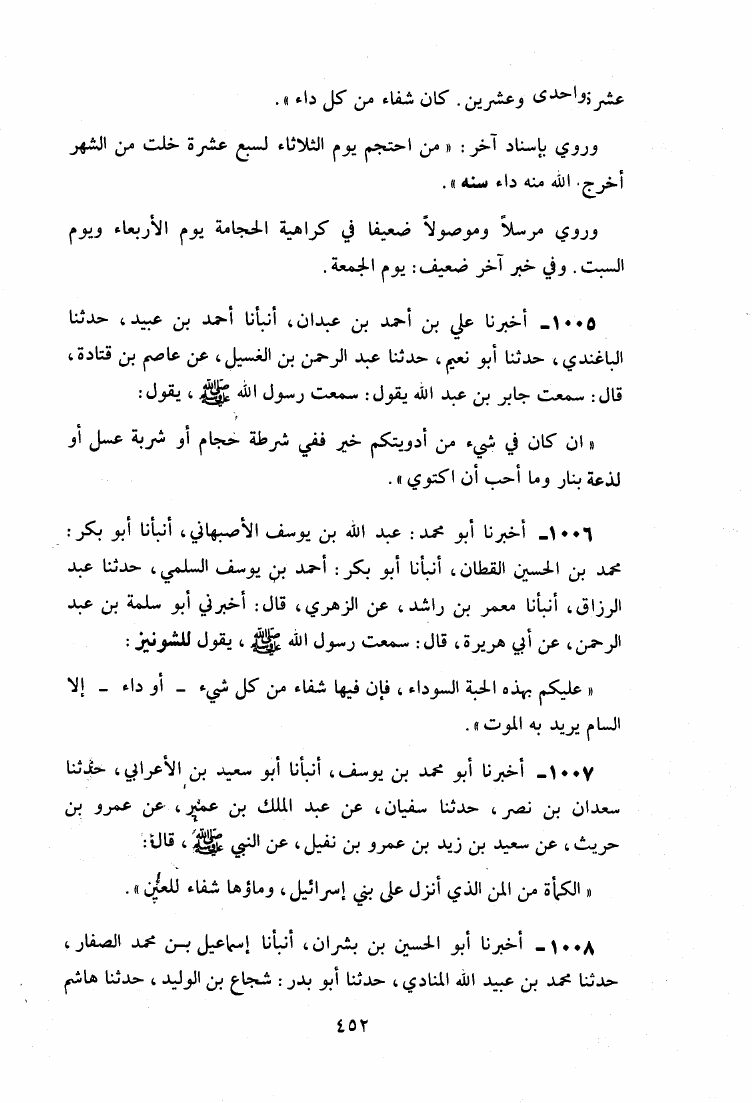 عشرة واحدى وعشرين. كان شفاء من كل داء».
وروي بإسناد آخر: «من احتجم يوم الثلاثاء لسبع عشرة خلت من الشهر
أخرج الله منه داء سنه».
وروي مرسلاً وموصولاً ضعيفا في كراهية الحجامة يوم الأربعاء ويوم
السبت. وفي خبر آخر ضعيف: يوم الجمعة.
١٠٠٥ـ أخبرنا علي بن أحمد بن عبدان، أنبأنا أحمد بن عبيد، حدثنا
الباغندي، حدثنا أبو نعيم، حدثنا عبد الرحمن بن الغسيل، عن عاصم بن قتادة،
قال: سمعت جابر بن عبد الله يقول: سمعت رسول الله ﷺ، يقول:
«ان كان في شيء من أدويتكم خير ففي شرطة حجام أو شربة عسل أو
لذعة بنار وما أحب أن اكتوي».
١٠٠٦ـ أخبرنا أبو محمد: عبد الله بن يوسف الأصبهاني، أنبأنا أبو بكر:
محمد بن الحسين القطان، أنبأنا أبو بكر: أحمد بن يوسف السلمي، حدثنا عبد
الرزاق، أنبأنا معمر بن راشد، عن الزهري، قال: أخبرني أبو سلمة بن عبد
الرحمن، عن أبي هريرة، قال: سمعت رسول الله ﷺ، يقول للشونيز:
«عليكم بهذه الحبة السوداء، فإن فيها شفاء من كل شيء ـ أو داء ـ إلا
السام يريد به الموت».
١٠٠٧ـ أخبرنا أبو محمد بن يوسف، أنبأنا أبو سعيد بن الأعرابي، حدثنا
سعدان بن نصر، حدثنا سفيان، عن عبد الملك بن عمير، عن عمرو بن
حريث، عن سعيد بن زيد بن عمرو بن نفيل، عن النبي ﷺ، قال:
«الكمأة من المن الذي أنزل على بني إسرائيل، وماؤها شفاء للعين».
١٠٠٨ـ أخبرنا أبو الحسين بن بشران، أنبأنا إسماعيل بن محمد الصفار،
حدثنا محمد بن عبيد الله المنادي، حدثنا أبو بدر: شجاع بن الوليد، حدثنا هاشم
٤٥٢